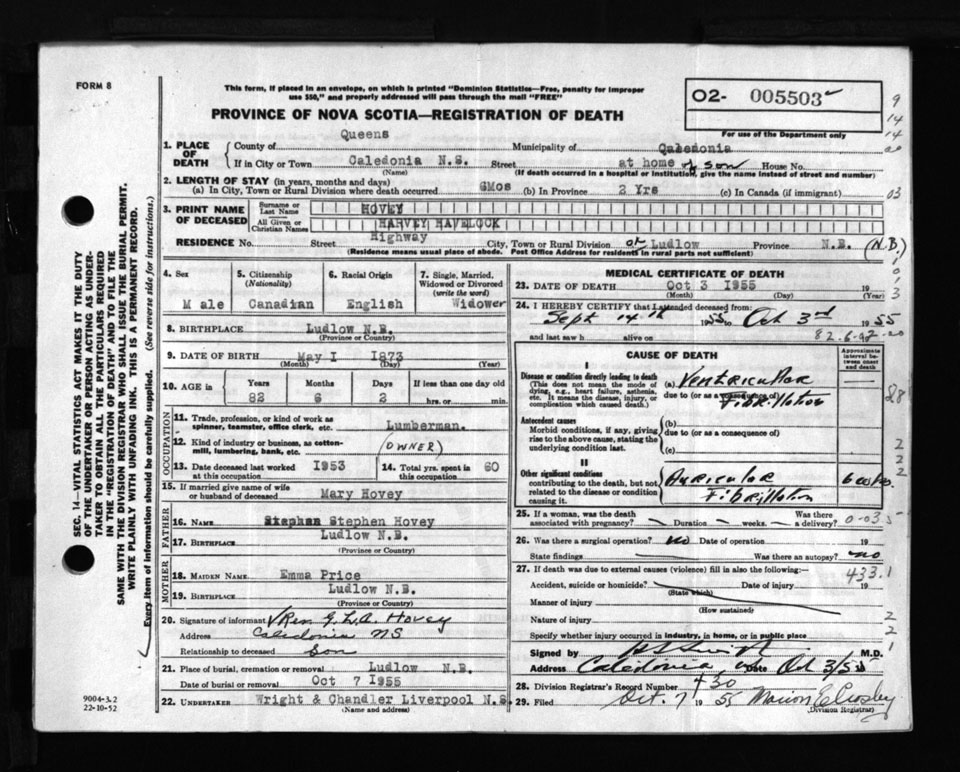 FORM 8
This form, if placed in an envelope, on which is printed "Dominion Statistics—Free, penalty for improper
use $50," and properly addressed will pass through the mail "FREE"
O2- 005503
For use of the Department only
PROVINCE OF NOVA SCOTIA—REGISTRATION OF DEATH
1. PLACE OF DEATH
County of Queens Municipality of Qaledonia
If in City or Town Caledonia N.S. Street at home of son House No.
(Name) (If death occurred in a hospital or institution, give the name instead of street and number)
2. LENGTH OF STAY (in years, months and days)
(a) In City, Town or Rural Division where death occurred 6Mos (b) In Province 2 Yrs (c) In Canada (if immigrant)
3. PRINT NAME OF DECEASED
Surname or Last Name HOVEY
All Given or Christian Names HARVEY HAVELOCK
RESIDENCE No. Street Highway City, Town or Rural Division of Ludlow Province N.B. (N.B.)
(Residence means usual place of abode. Post Office Address for residents in rural parts not sufficient)
4. Sex
Male
5. Citizenship
(Nationality)
Canadian
6. Racial Origin
English
7. Single, Married, Widowed or Divorced
(write the word)
Widower
8. BIRTHPLACE Ludlow N.B.
(Province or Country)
9. DATE OF BIRTH May I 1873
(Month) (Day) (Year)
10. AGE in
Years Months Days If less than one day old
82 6 2 hrs. or min.
OCCUPATION
11. Trade, profession, or kind of work as
spinner, teamster, office clerk, etc. Lumberman.
12. Kind of industry or business, as cotton-
mill, lumbering, bank, etc. (OWNER)
13. Date deceased last worked
at this occupation I953
14. Total yrs. spent in
this occupation 60
15. If married give name of wife
or husband of deceased Mary Hovey
FATHER
16. NAME Stephan Stephen Hovey
17. BIRTHPLACE Ludlow N.B.
(Province or Country)
MOTHER
18. MAIDEN NAME Emma Price
19. BIRTHPLACE Ludlow N.B.
(Province or Country)
20. Signature of informant Rev. G. W. A. Hovey
Address Caledonia N S
Relationship to deceased Son
21. Place of burial, cremation or removal Ludlow N.B.
Date of burial or removal Oct 7 I955
22. UNDERTAKER Wright & Chandler Liverpool N.S.
(Name and address)
MEDICAL CERTIFICATE OF DEATH
23. DATE OF DEATH Oct 3 I955 19
(Month) (Day) (Year)
24. I HEREBY CERTIFY that I attended deceased from:
Sept 14th 1955 to Oct 3rd 1955
and last saw h alive on 19
CAUSE OF DEATH
Approximate
interval be-
tween onset
and death
I
Disease or condition directly leading to death
(This does not mean the mode of
dying, e.g., heart failure, asthenia,
etc. It means the disease, injury, or
complication which caused death.)
(a) Ventricular
due to (or as a consequence of)
Fibrillation
Antecedent causes
Morbid conditions, if any, giving
rise to the above cause, stating the
underlying condition last.
(b)
due to (or as a consequence of)
(c)
II
Other significant conditions
contributing to the death, but not
related to the disease or condition
causing it.
Auricular
Fibrillation
25. If a woman, was the death
associated with pregnancy? Duration weeks. Was there
a delivery?
26. Was there a surgical operation? no Date of operation 19
State findings Was there an autopsy? no
27. If death was due to external causes (violence) fill in also the following:
433.1
Accident, suicide or homicide? Date of injury 19
(State which)
Manner of injury
(How sustained)
Nature of injury
Specify whether injury occurred in industry, in home, or in public place
Signed by M.D.
Address Caledonia Date Oct 3/55
28. Division Registrar's Record Number 430
29. Filed Oct. 7 1955 Marion E Crosby
(Division Registrar)
9004-3.2
22-10-52
SEC. 14—VITAL STATISTICS ACT MAKES IT THE DUTY
OF THE UNDERTAKER OR PERSON ACTING AS UNDER-
TAKER TO OBTAIN ALL THE PARTICULARS REQUIRED
IN THE "REGISTRATION OF DEATH" AND TO FILE THE
SAME WITH THE DIVISION REGISTRAR WHO SHALL ISSUE THE BURIAL PERMIT.
WRITE PLAINLY WITH UNFADING INK. THIS IS A PERMANENT RECORD.
Every item of information should be carefully supplied. (See reverse side for instructions.)